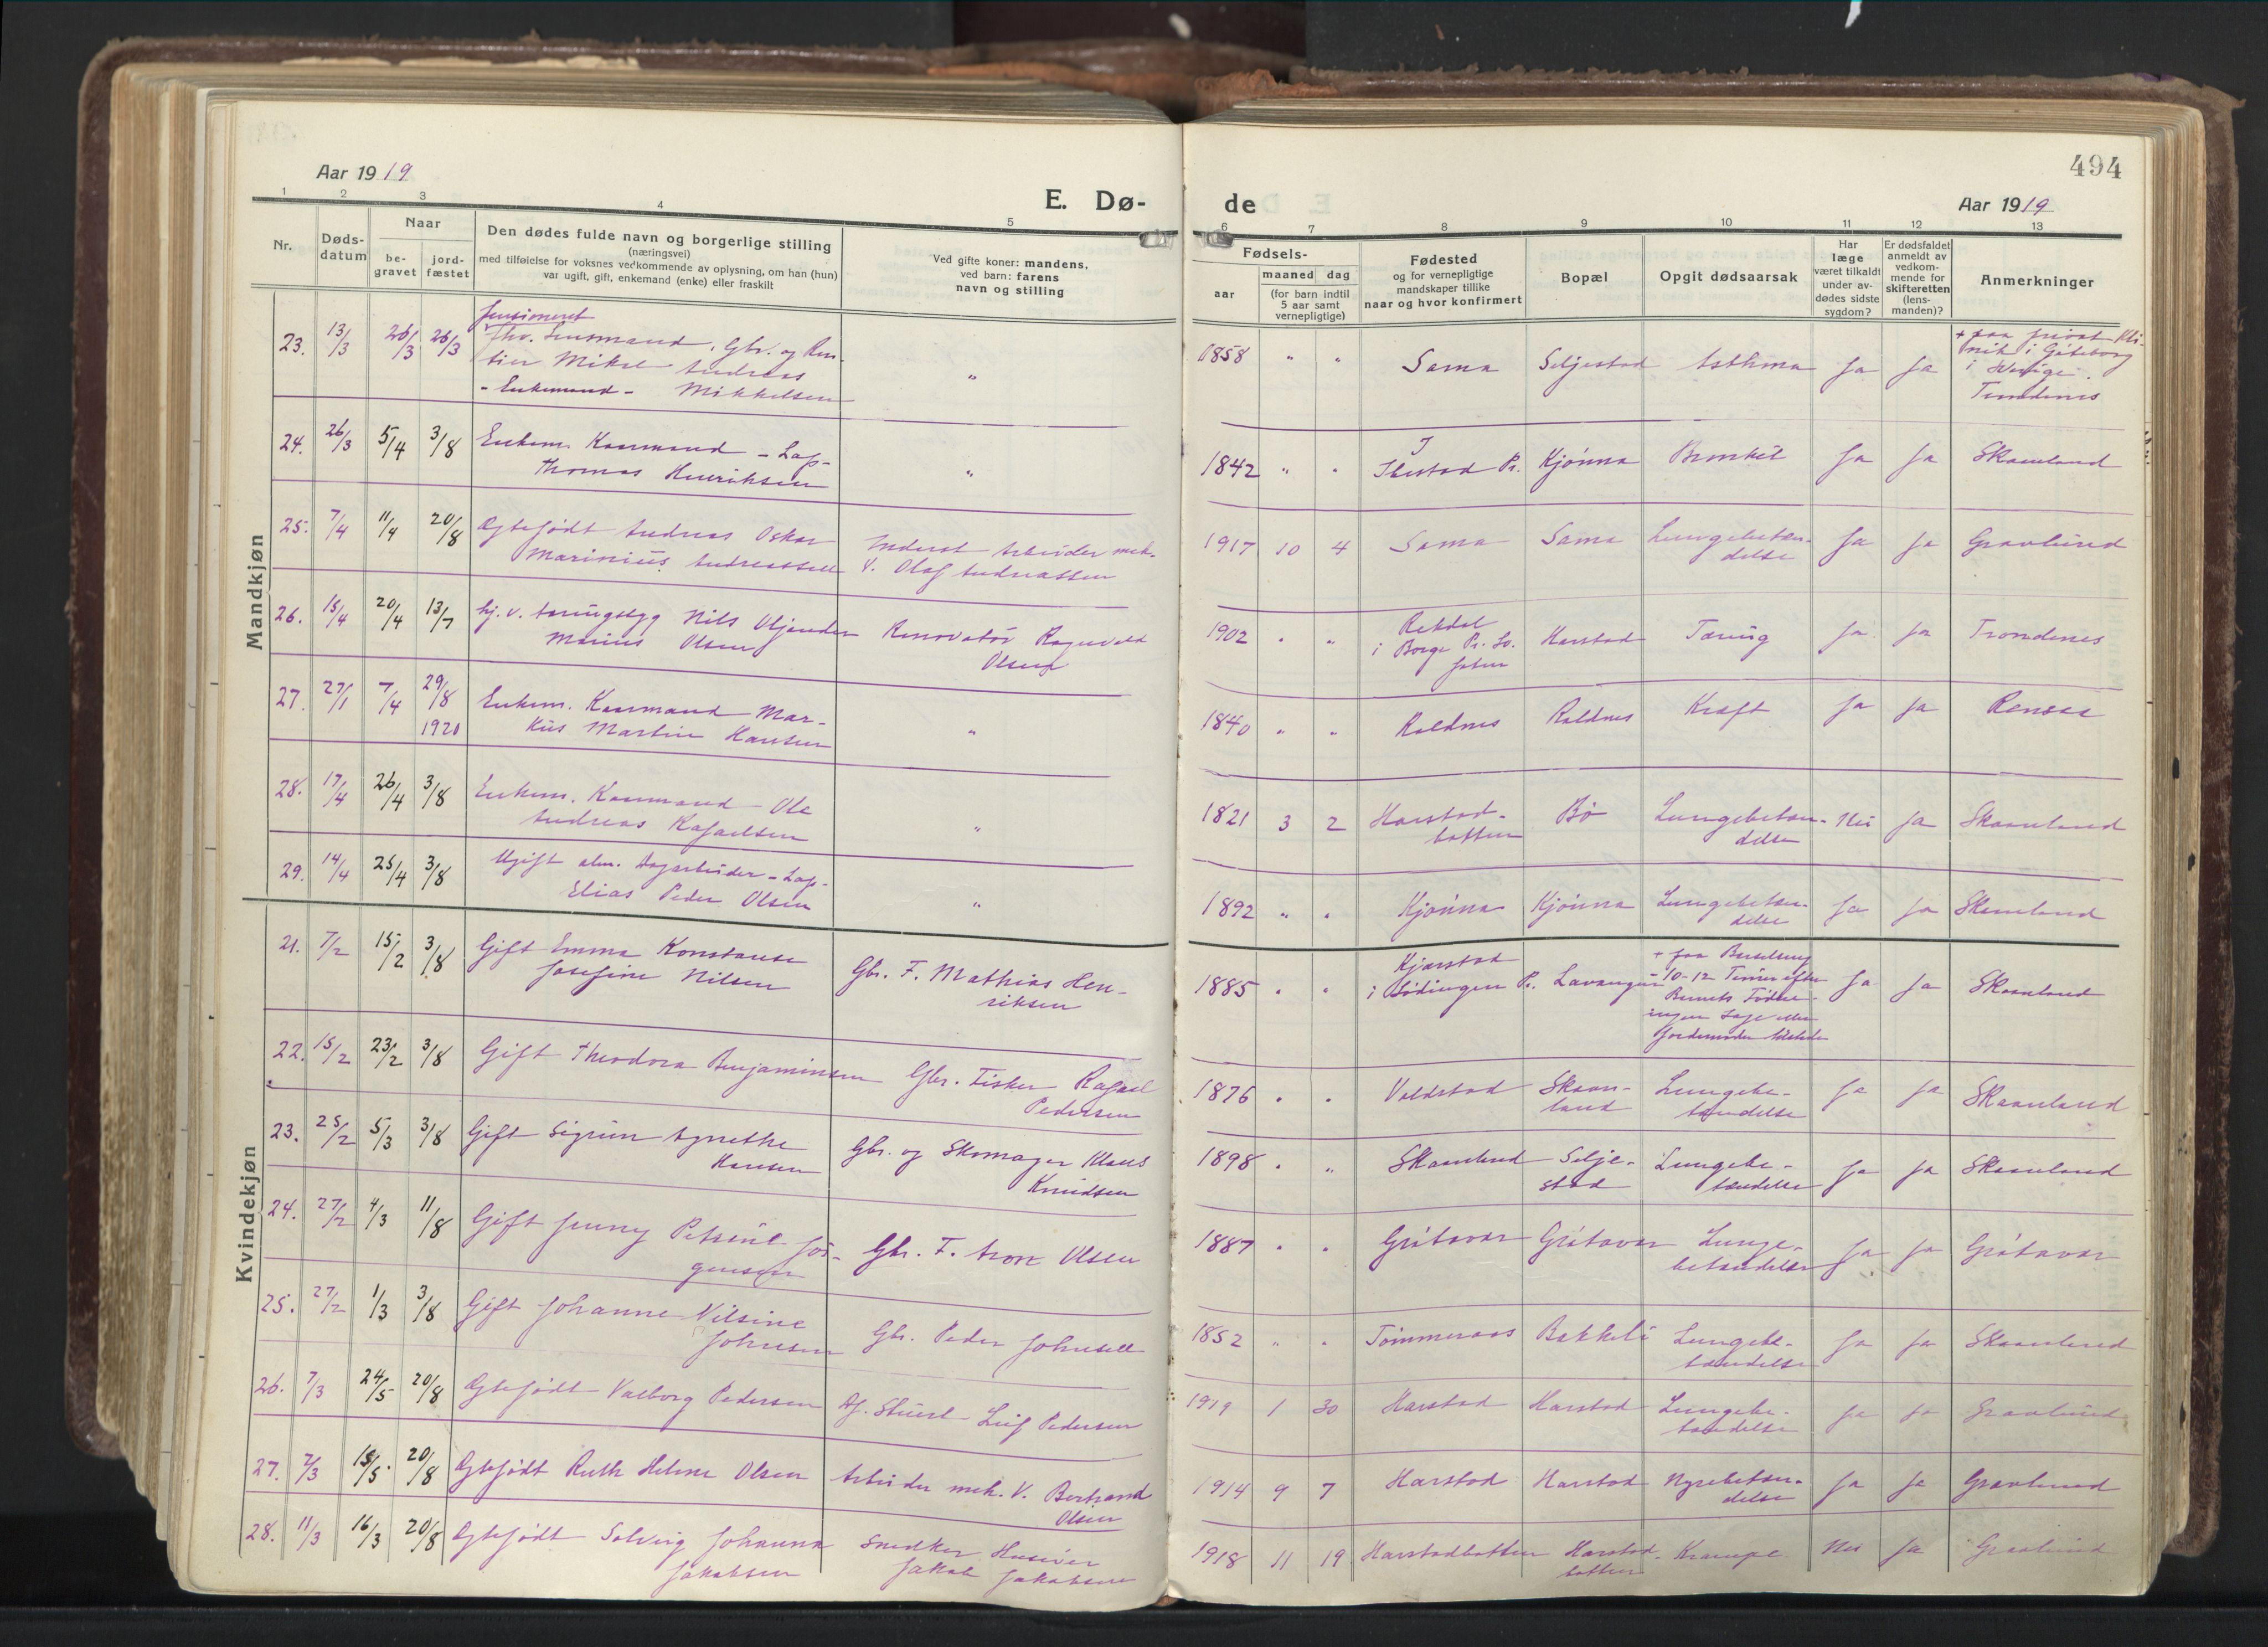 494
Aar 1919
E. Dø-
de
Aar 1919
1 2 3 4 5 6 7 8 9 10 11 12 13
Nr.
Døds-
datum
Naar
be-
gravet
jord-
fæstet
Den dødes fulde navn og borgerlige stilling
(næringsvei)
med tilføielse for voksnes vedkommende av oplysning, om han (hun)
var ugift, gift, enkemand (enke) eller fraskilt
Ved gifte koner: mandens,
ved barn: farens
navn og stilling
Fødsels-
aar
maaned dag
(for barn indtil
5 aar samt
vernepligtige)
Fødested
og for vernepligtige
mandskaper tillike
naar og hvor konfirmert
Bopæl
Opgit dødsaarsak
Har
læge
været tilkaldt
under av-
dødes sidste
sygdom?
Er dødsfaldet
anmeldt av
vedkom-
mende for
skifteretten
(lens-
manden)?
Anmerkninger
Mandkjøn
23. 13/3 26/3 26/3 pensioneret
Fhv. Lensmand, Gbr. og Ren-
tier Mikal Andreas
- Enkemand - Mikkelsen " 1858 " " Sama Seljestad Asthma Ja Ja + paa privat Kli-
nik i Göteborg
i Sverige.
Trondenes
24. 26/3 5/4 3/8 Enkem. Kaarmand - Lap-
Thomas Henriksen " 1842 " " I
Ibestad Pr. Kjönna Bronkit Ja Ja Skaanland
25. 7/4 11/4 20/8 Ægtefødt Andreas Oskar
Marinius Andreassen Inderst Arbeider mek.
V. Olaf Andreassen 1917 10 4 Sama Sama Lungebetæn-
delse Ja Ja Gravlund
26. 15/4 20/4 13/7 hj.v. tæringssyg Nils
Marius Olsen Renovatör Ragnvald
Olsen 1902 " " i Borge Pr. Lo-
foten Harstad Tæring Ja Ja Trondenes
27. 27/1 7/4 29/8
1920 Enkem. Kaarmand Mar-
kus Martin Hansen " 1840 " " Roldnes Roldnes Kræft Ja Ja Rensaa
28. 17/4 26/4 3/8 Enkem. Kaarmand - Ole
Andreas Rafaelsen " 1821 3 2 Harstad-
botten Bö Lungebetæn-
delse Nei Ja Skaanland
29. 14/4 25/4 3/8 Ugift alm. Dagarbeider - Lap-
Elias Peder Olsen " 1892 " " Kjönna Kjönna Lungebetæn-
delse Ja Ja Skaanland
Kvindekjøn
21. 7/2 15/2 3/8 Gift Emma Konstanse
Josefine Nilsen Gbr. F. Mathias Hen-
riksen 1885 " " Kjærstad
i Lödingen Pr. Lavangen + paa Barselseng
- 10-12 Timer efter
Barnets Födsel -
ingen Læge eller
Jordemoder tilstede Ja Ja Skaanland
22. 15/2 23/2 3/8 Gift Theodora Benjaminsen Gbr. Fisker Rafael
Pedersen 1876 " " Voldstad Skaan-
land Lungebe-
tændelse Ja Ja Skaanland
23. 25/2 5/3 3/8 Gift Sigrun Agnethe
Hansen Gbr. og Skomager Klaus
Knudsen 1898 " " Skaanland Selje-
stad Lungebe-
tændelse Ja Ja Skaanland
24. 27/2 4/3 11/8 Gift Jenny Petrine Jör-
gensen Gbr. F. Aron Olsen 1887 " " Grötavær Grötavær Lunge-
betændelse Ja Ja Grötavær
25. 27/2 1/3 3/8 Gift Johanne Nilsine
Johnsen Gbr. Peder Johnsen 1852 " " Tömmeraas Bakkeli Lungebe-
tændelse Ja Ja Skaanland
26. 7/3 24/5 20/8 Ægtefødt Valborg Pedersen Leif Pedersen 1919 1 30 Harstad Harstad Lungebe-
tændelse Ja Ja Gravlund
27. 7/3 15/5 20/8 Ægtefødt Ruth Helene Olsen Arbeider mek. V. Bertrand
Olsen 1914 9 7 Harstad Harstad Nyrebetæn-
delse Ja Ja Gravlund
28. 11/3 16/3 20/8 Ægtefødt Solveig Johanna
Jakobsen Snedker Huseier
Jakob Jakobsen 1918 11 19 Harstadbotten Harstad-
botten Krampe Nei Ja Gravlund